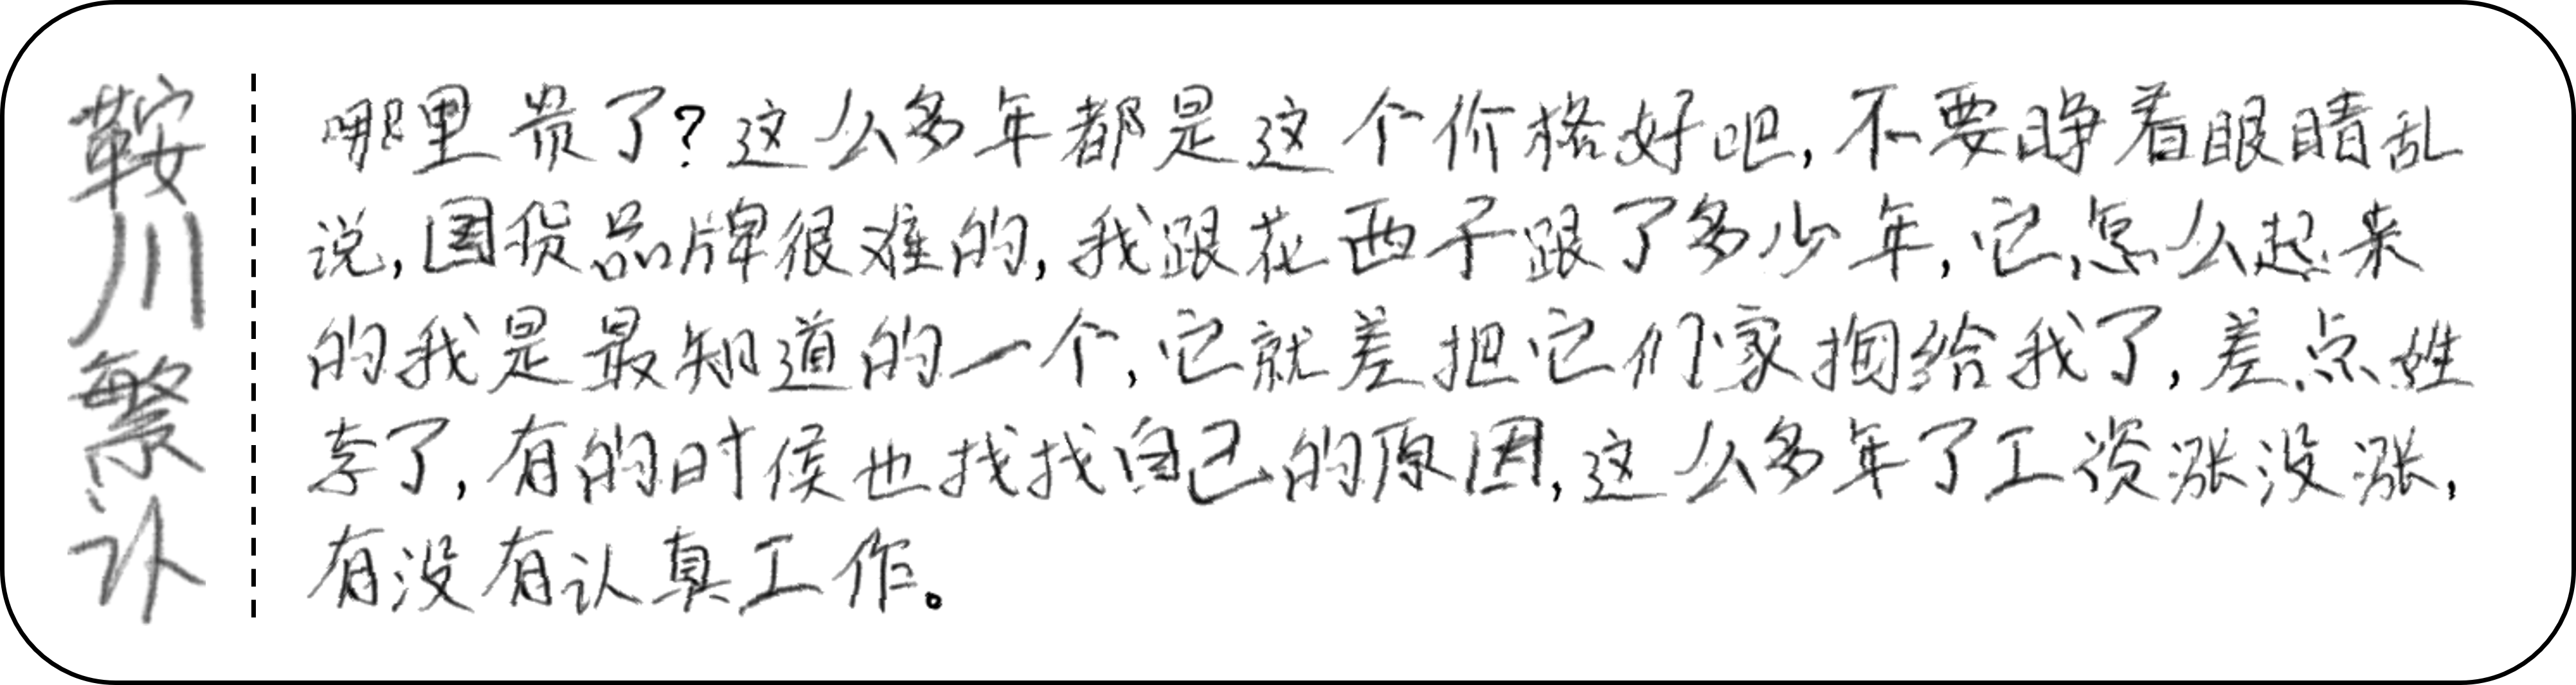 鞍川繁讣
哪里贵了?这么多年都是这个价格好吧,不要睁着眼睛乱
说,国货品牌很难的,我跟花西子跟了多少年,它怎么起来
的我是最知道的一个,它就差把它们家掏给我了,差点姓
李了,有的时候也找找自己的原因,这么多年了工资涨没涨,
有没有认真工作。